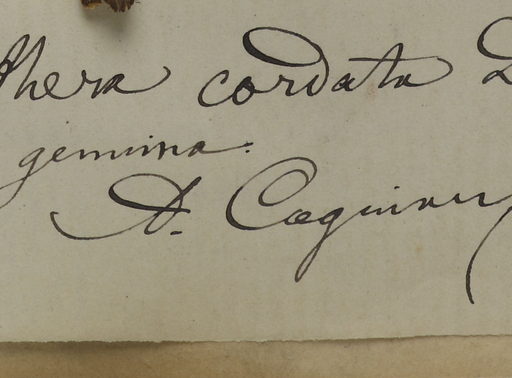 thera cordata D
genuina.
A. Cogniaux